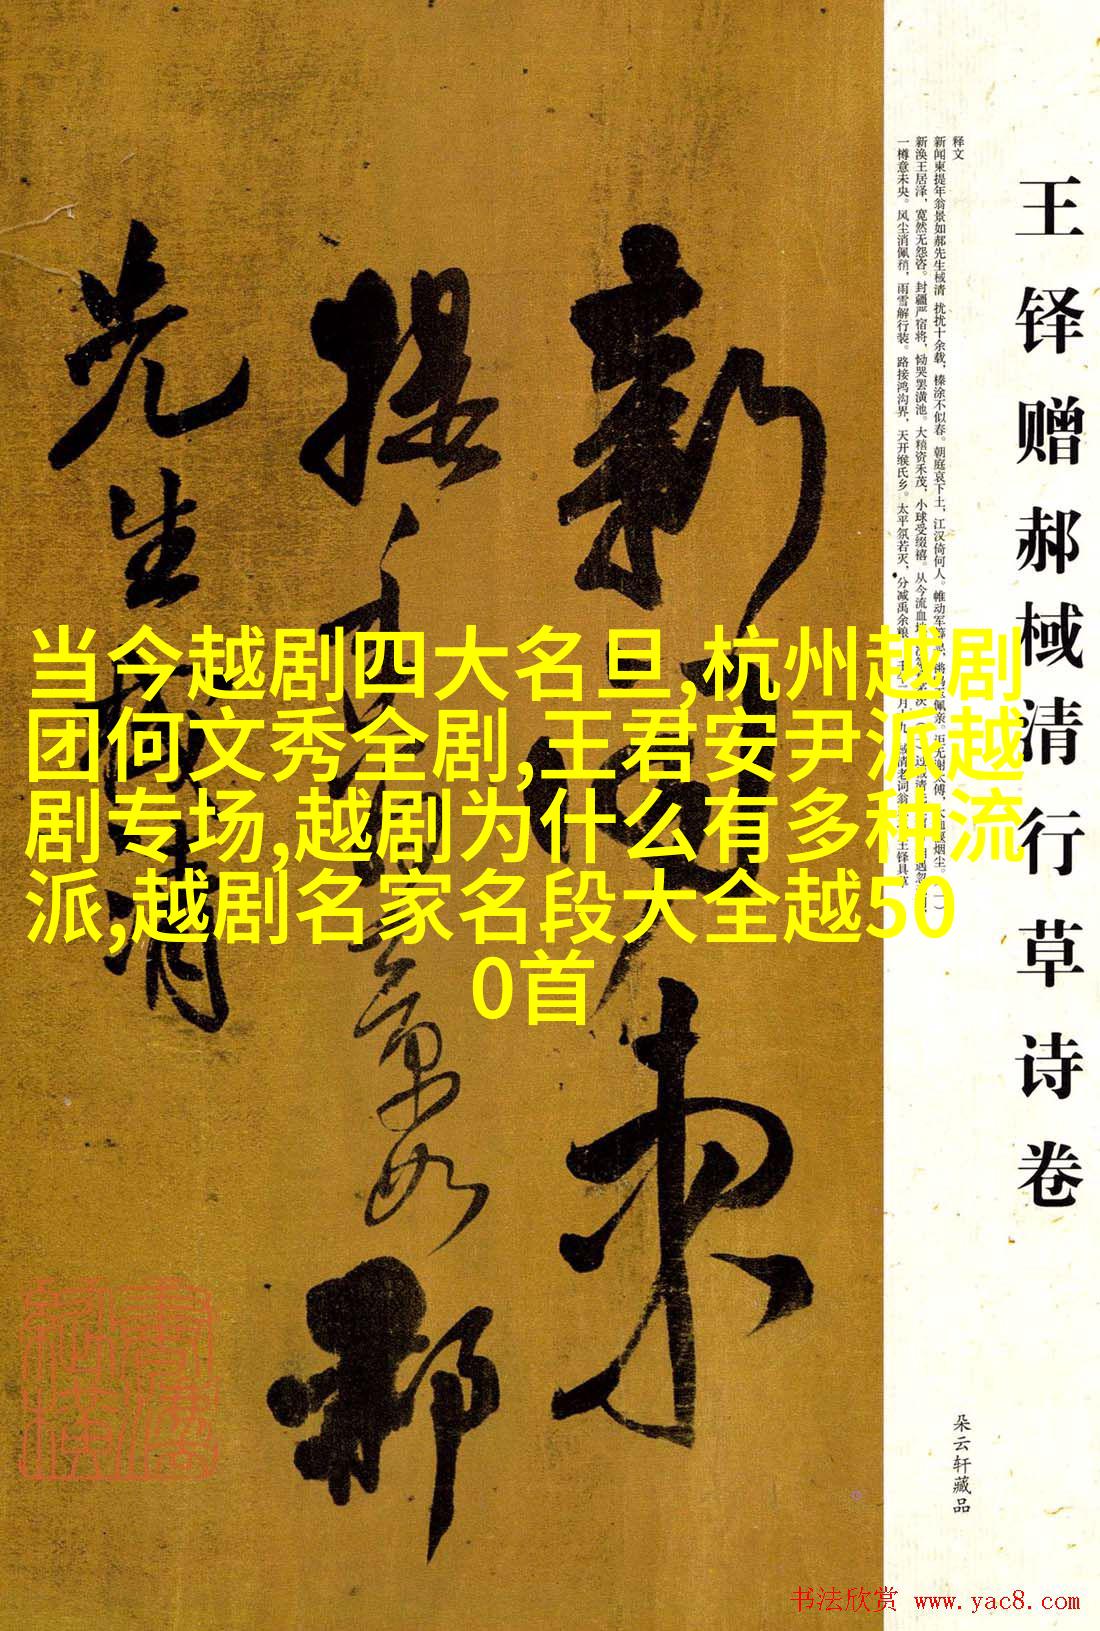 王铎赠郝棫清行草诗卷
释文
新闻東提年翁景如郝先生棫清 扰扰十余载，榛涂不似春。朝庭哀下土，江汉倚何人。帷动军
新涣王居泽，宽然无怨咨。封疆严宿将，恸哭罢潢池。大精资禾茂，小球受缀禧。从今流血
一樽意未央。风尘消佩矟，雨雪解行装。路接鸿沟界，天开缑氏乡。太平氛若灭，分减禹余粮
新闻東
提年翁景如郝
先生棫清
当今越剧四大名旦,杭州越剧
团何文秀全剧,王君安尹派越
剧专场,越剧为什么有多种流
派,越剧名家名段大全越50
0首
朵云轩藏品
书法欣赏 www.yac8.com